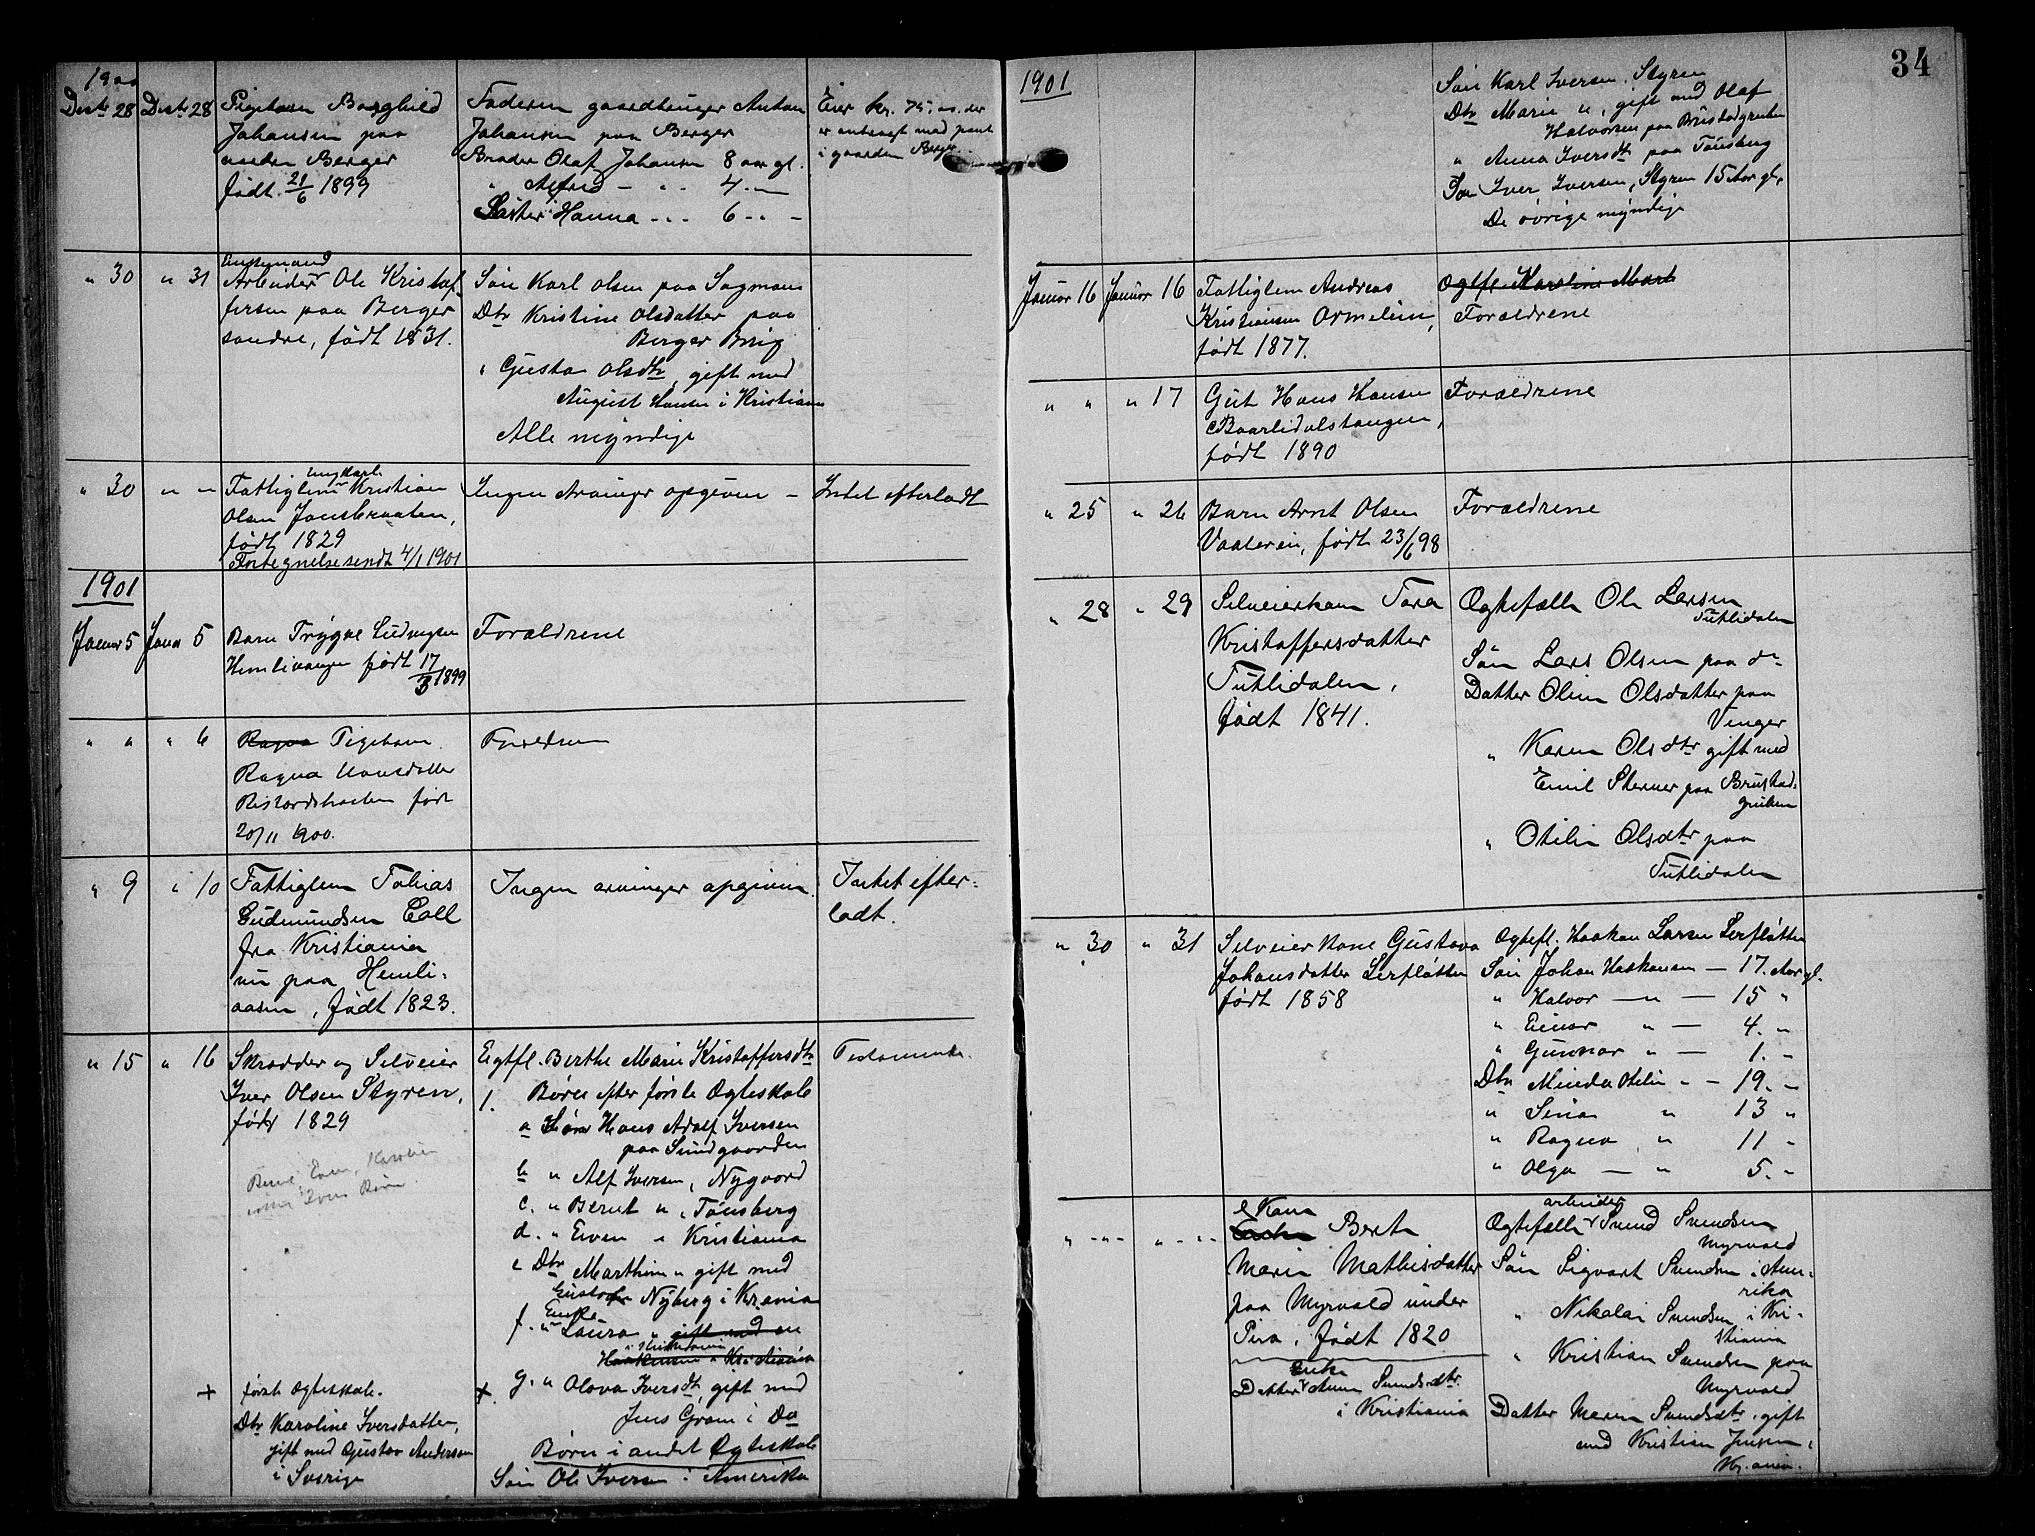 1900
Desbr 28 Desbr 28 Pigebarn Borghild
Johansen paa
nedre Berger
født 21/6 1899
Faderen gaardbruger Anton
Johansen paa Berger
Broder Olaf Johansen 8 aar gl.
" Alfred — " 4 —
Søster Hanna " 6 " -
Eier kr. 75,00 der
er anbragt mod pant
i gaarden Berger.
" 30 " 31 Enkemand
Arbeider Ole Kristof-
fersen paa Berger
søndre, født 1831.
Søn Karl Olsen paa Sagmoen
Dtr Kristine Olsdatter paa
Berger Brug
" Gusta Olsdtr, gift med
August Hansen i Kristiania
Alle myndige
" 30 " " Ungkarl
Fattiglem Kristian
Olsen Jonsbraaten,
født 1829
Fortegnelse sendt 4/1 1901
Ingen Arvinger opgiven -
Intet efterladt
1901
Januar 5 Januar 5 Barn Trygve Ludvigsen
Hemlivangen født 17/3 1899
Forældrene
" " " 6 Ragna Pigebarn
Ragna Hansdatter
født
20/11 1900.
Forældrene
" 9 " 10 Fattiglem Tobias
Gudmundsen Coll
fra Kristiania
nu paa Hemli-
aasen, født 1823.
Ingen arvinger opgiven.
Intet efter-
ladt.
" 15 " 16 Skrædder og Selveier
Iver Olsen Styren,
født 1829
Egtfl. Berthe Marie Kristoffersdtr
1. Børn efter første Ægteskab
a Søn Hans Adolf Iversen
paa Sundgaarden
b " Alf Iversen, Nygaard
c. " Bernt ", Tønsberg
d. " Even " Kristiania
e Dtr Marthine " gift med
Gustav Nyberg i Krania
f. " Enke
Laura " gift med en
i Kristiania
Haakensen i Kristiania
+ g. " Olava Iversdtr, gift med
Jens Gran i Do
Børn i andet Ægteskab
Søn Ole Iversen i Amerika
Testamente.
+ første Ægteskab.
Dtr Karoline Iversdatter,
gift med Gustav Andersen
i Sverige
34
1901
Søn Karl Iversen, Styren
Dtr Marie ", gift med Olaf
Halvorsen paa Brustadgruben
" Anna Iversdtr paa Tønsberg
Søn Iver Iversen, Styren 15 Aar gl.
De øvrige myndige
Januar 16 Januar 16 Fattiglem Andreas
Kristiansen Ormelien,
født 1877.
Ægtfl. Karoline Mart
Forældrene
" " " 17 Gut Hans Hansen
Baarlidalstangen,
født 1890
Forældrene
" 25 " 26 Barn Arnt Olsen
Vaaleren, født 23/6 98
Forældrene
" 28 " 29 Selveierkone Tora
Kristoffersdatter
Tutlidalen,
født 1841.
Ægtefælle Ole Larsen
Tutlidalen
Søn Lars Olsen paa do
Datter Oline Olsdatter paa
Venger
" Karen Olsdtr gift med
Emil Skerner paa Brustad-
gruben
" Otilie Olsdtr paa
Tutlidalen
" 30 " 31 Selveierkone Gustava
Johansdatter Lerfløtten
født 1858
Ægtefl. Haakon Larsen Lerfløtten
Søn Johan Haakensen — 17 Aar gl.
" Halvor — " — 15 "
" Einar " — 4. "
" Gunnar " — 1. -
Dtr Minda Otilie " - 19. -
" Sina " 13 "
" Ragna " 11 -
" Olga — " 5. -
" - " - " - " - Kone
Enke Berte
Marie Mathisdatter
paa Myrvold under
Piro, født 1820
Enke
Datter Anne Svendsdtr
i Kristiania
arbeider
Ægtefælle Svend Svendsen
Myrvold
Søn Sigvart Svendsen i Ame-
rika
" Nikolai Svendsen i Kri-
stiania
" Kristian Svendsen paa
Myrvold
Datter Maren Svendsdtr, gift
med Kristian Jensen,
Kr.ania.